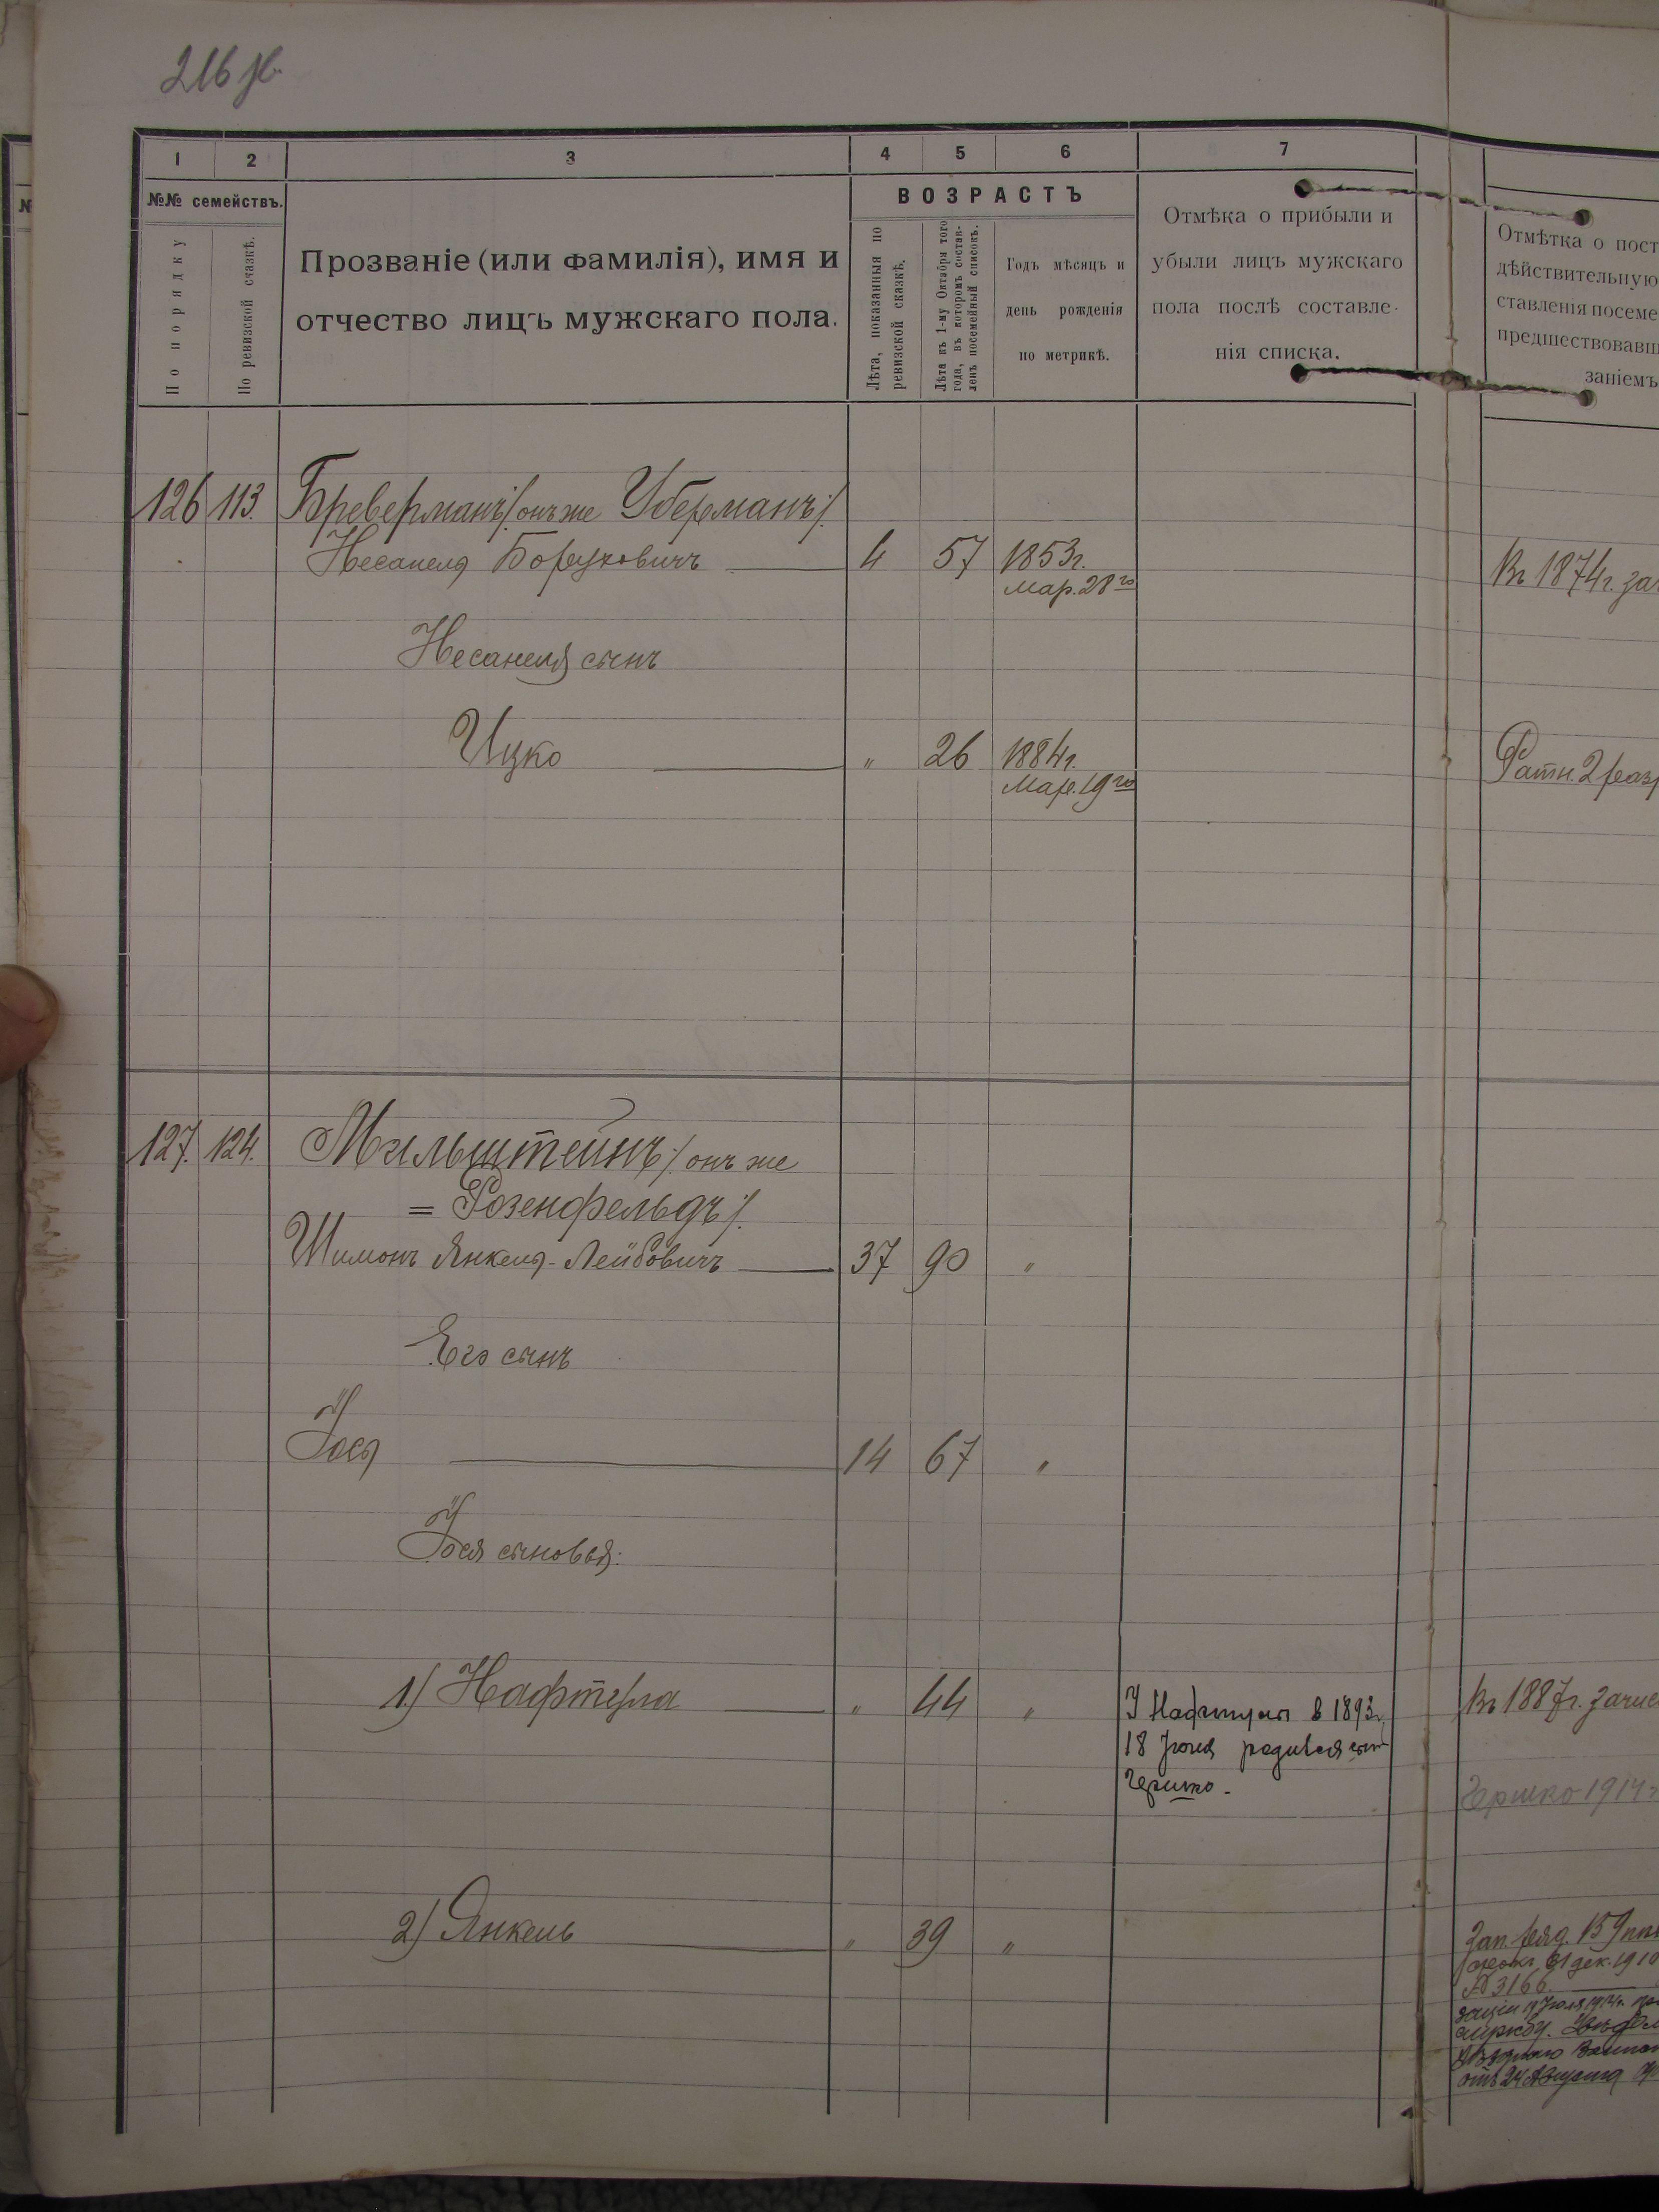 216 об.
1 2 3 4 5 6 7
№№ семействъ.
По порядку
По ревизской сказкѣ.
Прозваніе (или фамилія), имя и
отчество лицъ мужскаго пола.
ВОЗРАСТЪ
Лѣта, показанныя по
ревизской сказкѣ.
Лѣта къ 1-му Октября того
года, въ которомъ состав-
ленъ посемейный списокъ.
Годъ мѣсяцъ и
день рожденія
по метрикѣ.
Отмѣка о прибыли и
убыли лицъ мужскаго
пола послѣ составле-
нія списка.
Отмѣтка о пост
дѣйствительную
ставленія посеме
предшествовавш
заніемъ
126 113. Бреверманъ /: онъ же Уберманъ /:
Несанеля Борухович 4 57 1853г.
Мар. 28го
Въ 1874г. зач
Несанеля сынъ
Ицко " 26 1884г.
Мар. 19го
Ратн. 2 разр
127. 124. Мильштейнъ /: онъ же
= Розенфельдъ /:
Шимонъ Янкеля-Лейбовичъ 37 90 "
Его сынъ
Іося 14 67 "
Іося сыновья:
1) Нафтула " 44 "
У Нафтулы в 1893г.
18 Іюня родился сын
Гершко.
Въ 1887г. зачис
Гершко 1914г
2) Янкель " 39 "
Зап. ряд.
31 дек. 1910
№ 3166.
19 Іюля 1914г.
отъ 24 Августа